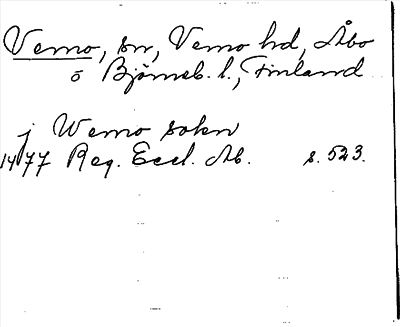 Vemo, sn, Vemo hd, Åbo
o Björneb. l., Finland
j Wemo sokn
1477 Reg. Eccl. Ab. s. 523.